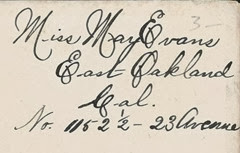 3-
Miss May Evans
East Oakland
Cal.
No. 1152 ½ - 23 Avenue